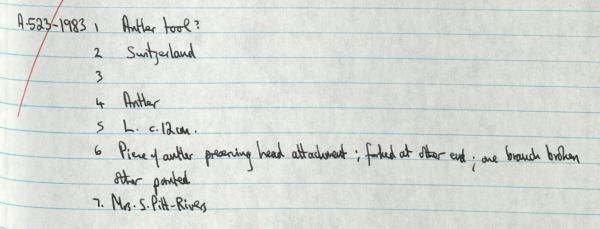 A.523-1983 1 Antler tool?
2 Switzerland
3
4 Antler
5 L. c.12cm.
6 Piece of antler preserving head attachment; forked at other end; one branch broken
other pointed
7. Mrs. S. Pitt-Rivers